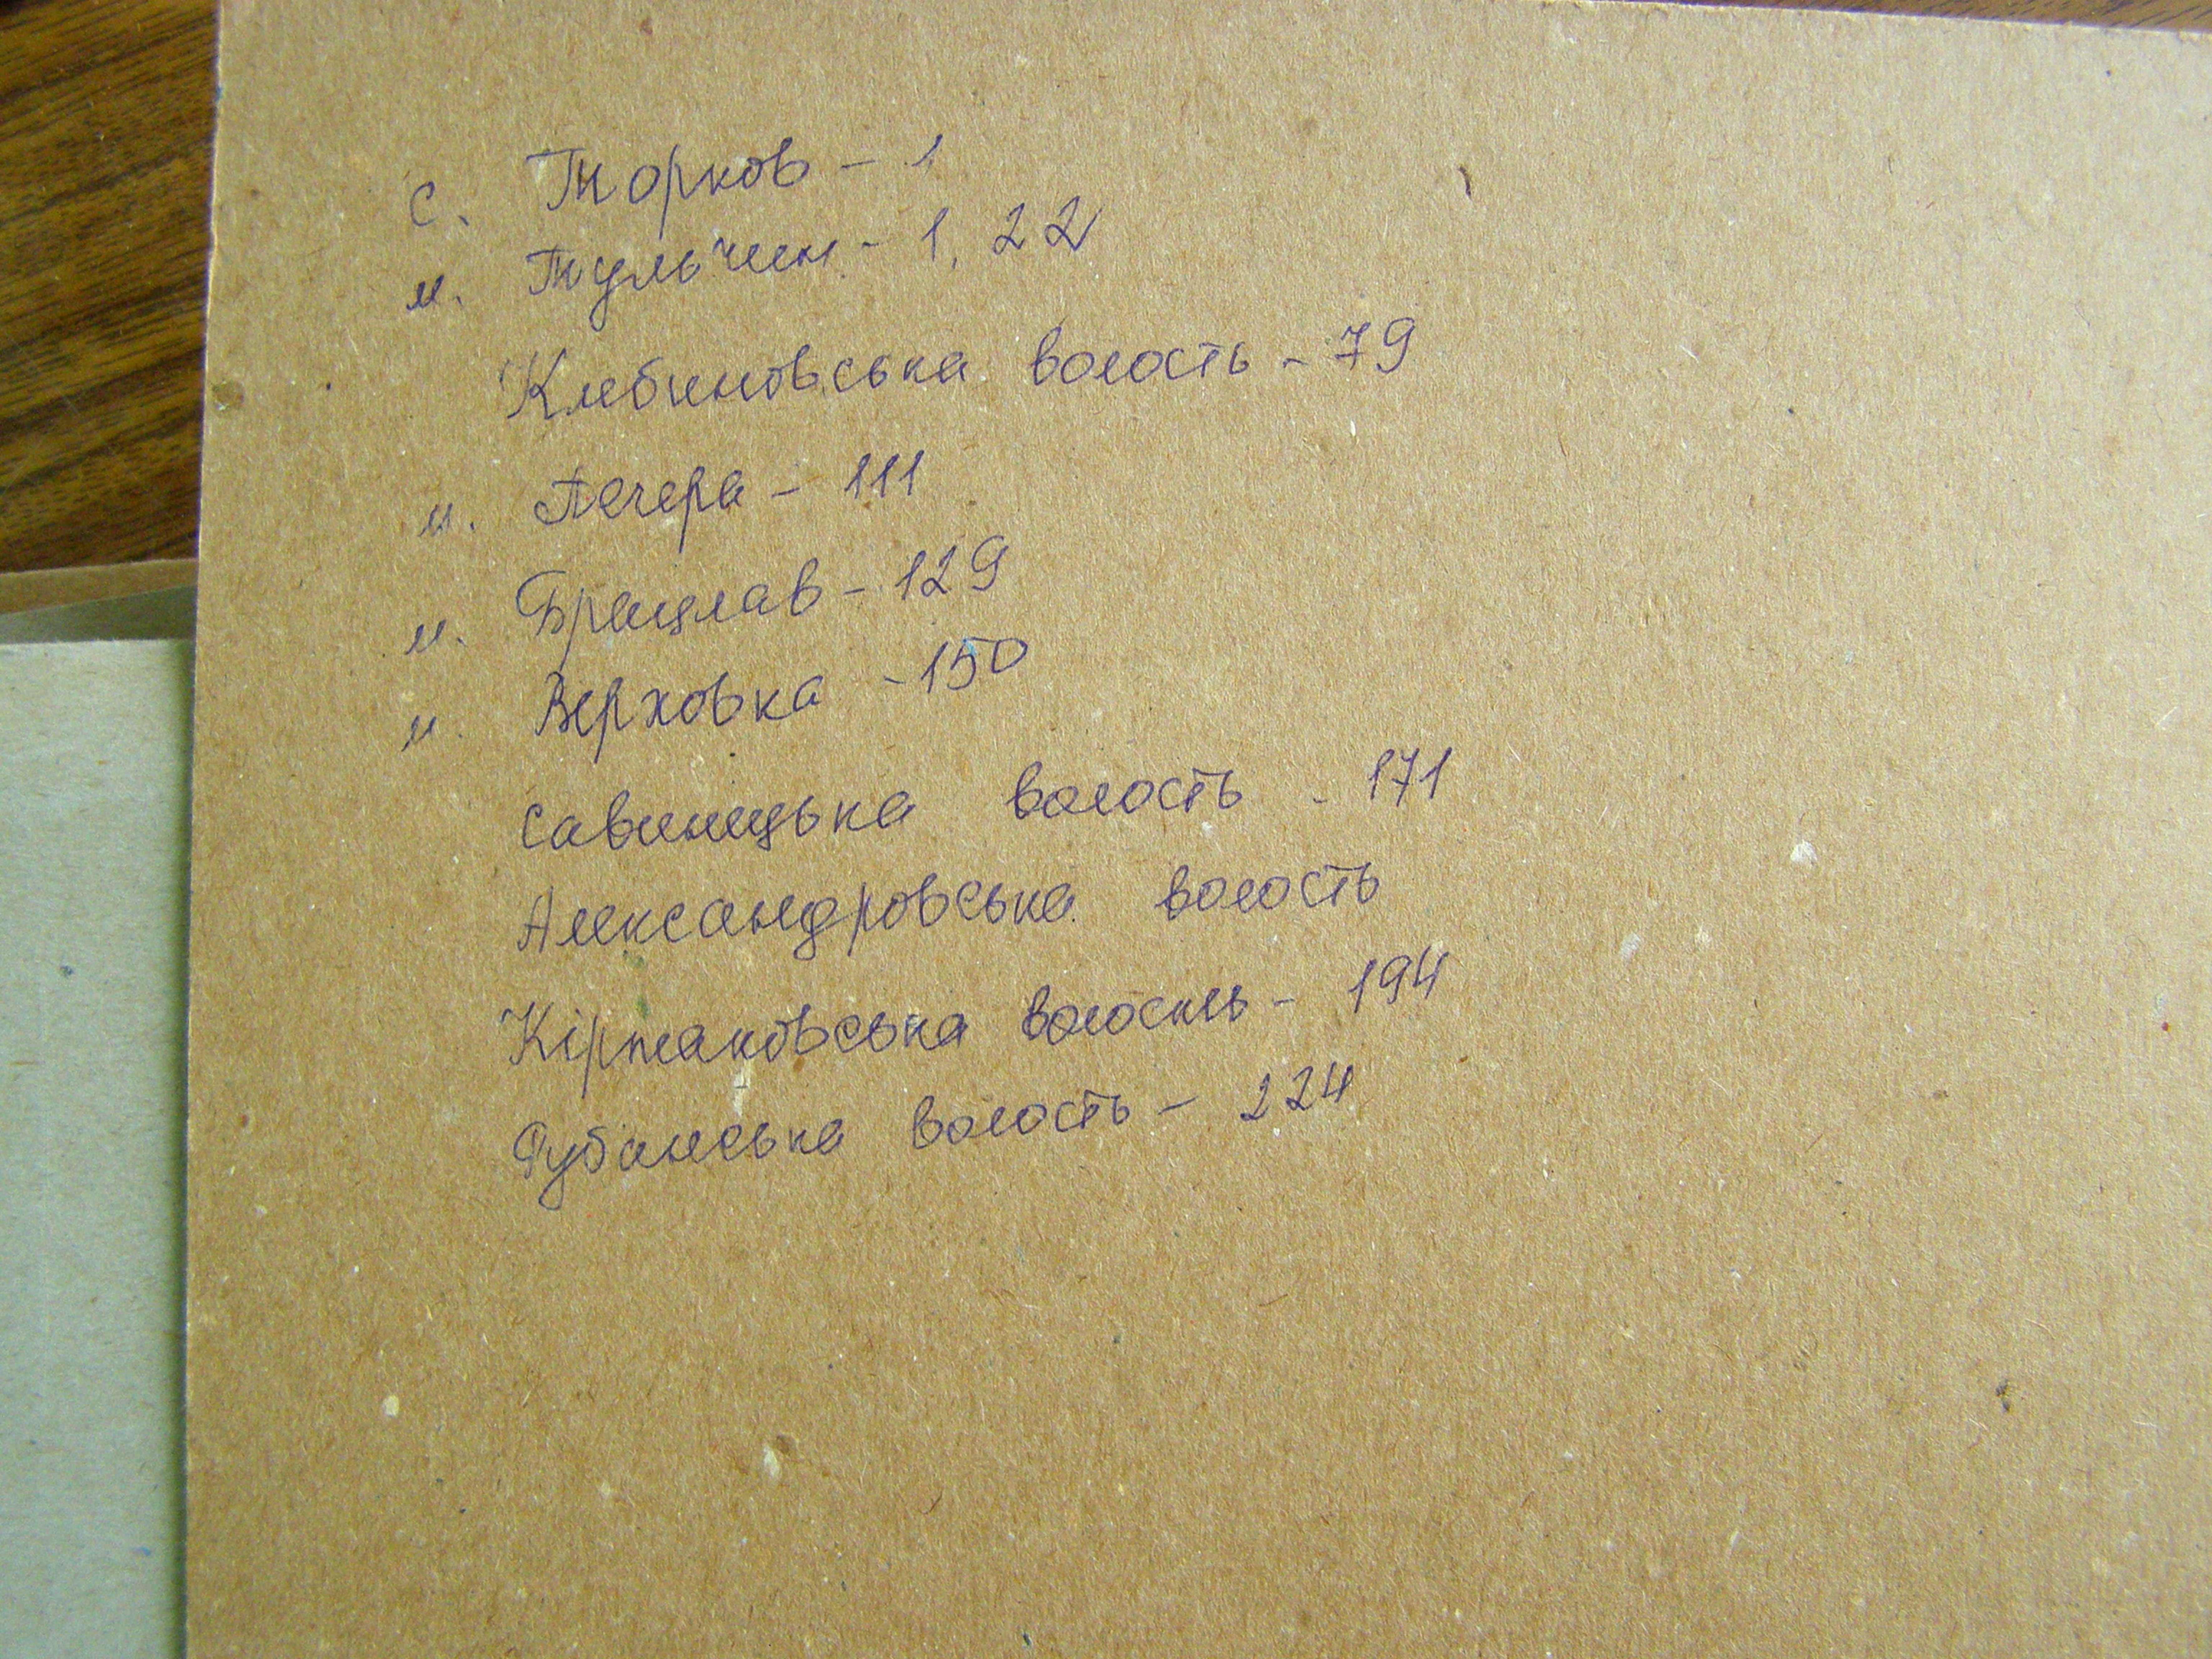 с. Торков - 1
м. Тульчин - 1, 22
Клебиновська волость - 79
м. Печера - 111
м. Брацлав - 129
м. Верховка - 150
Савинецька волость - 171
Александровська волость
Кірнаковська волость - 194
Рубанська волость - 224